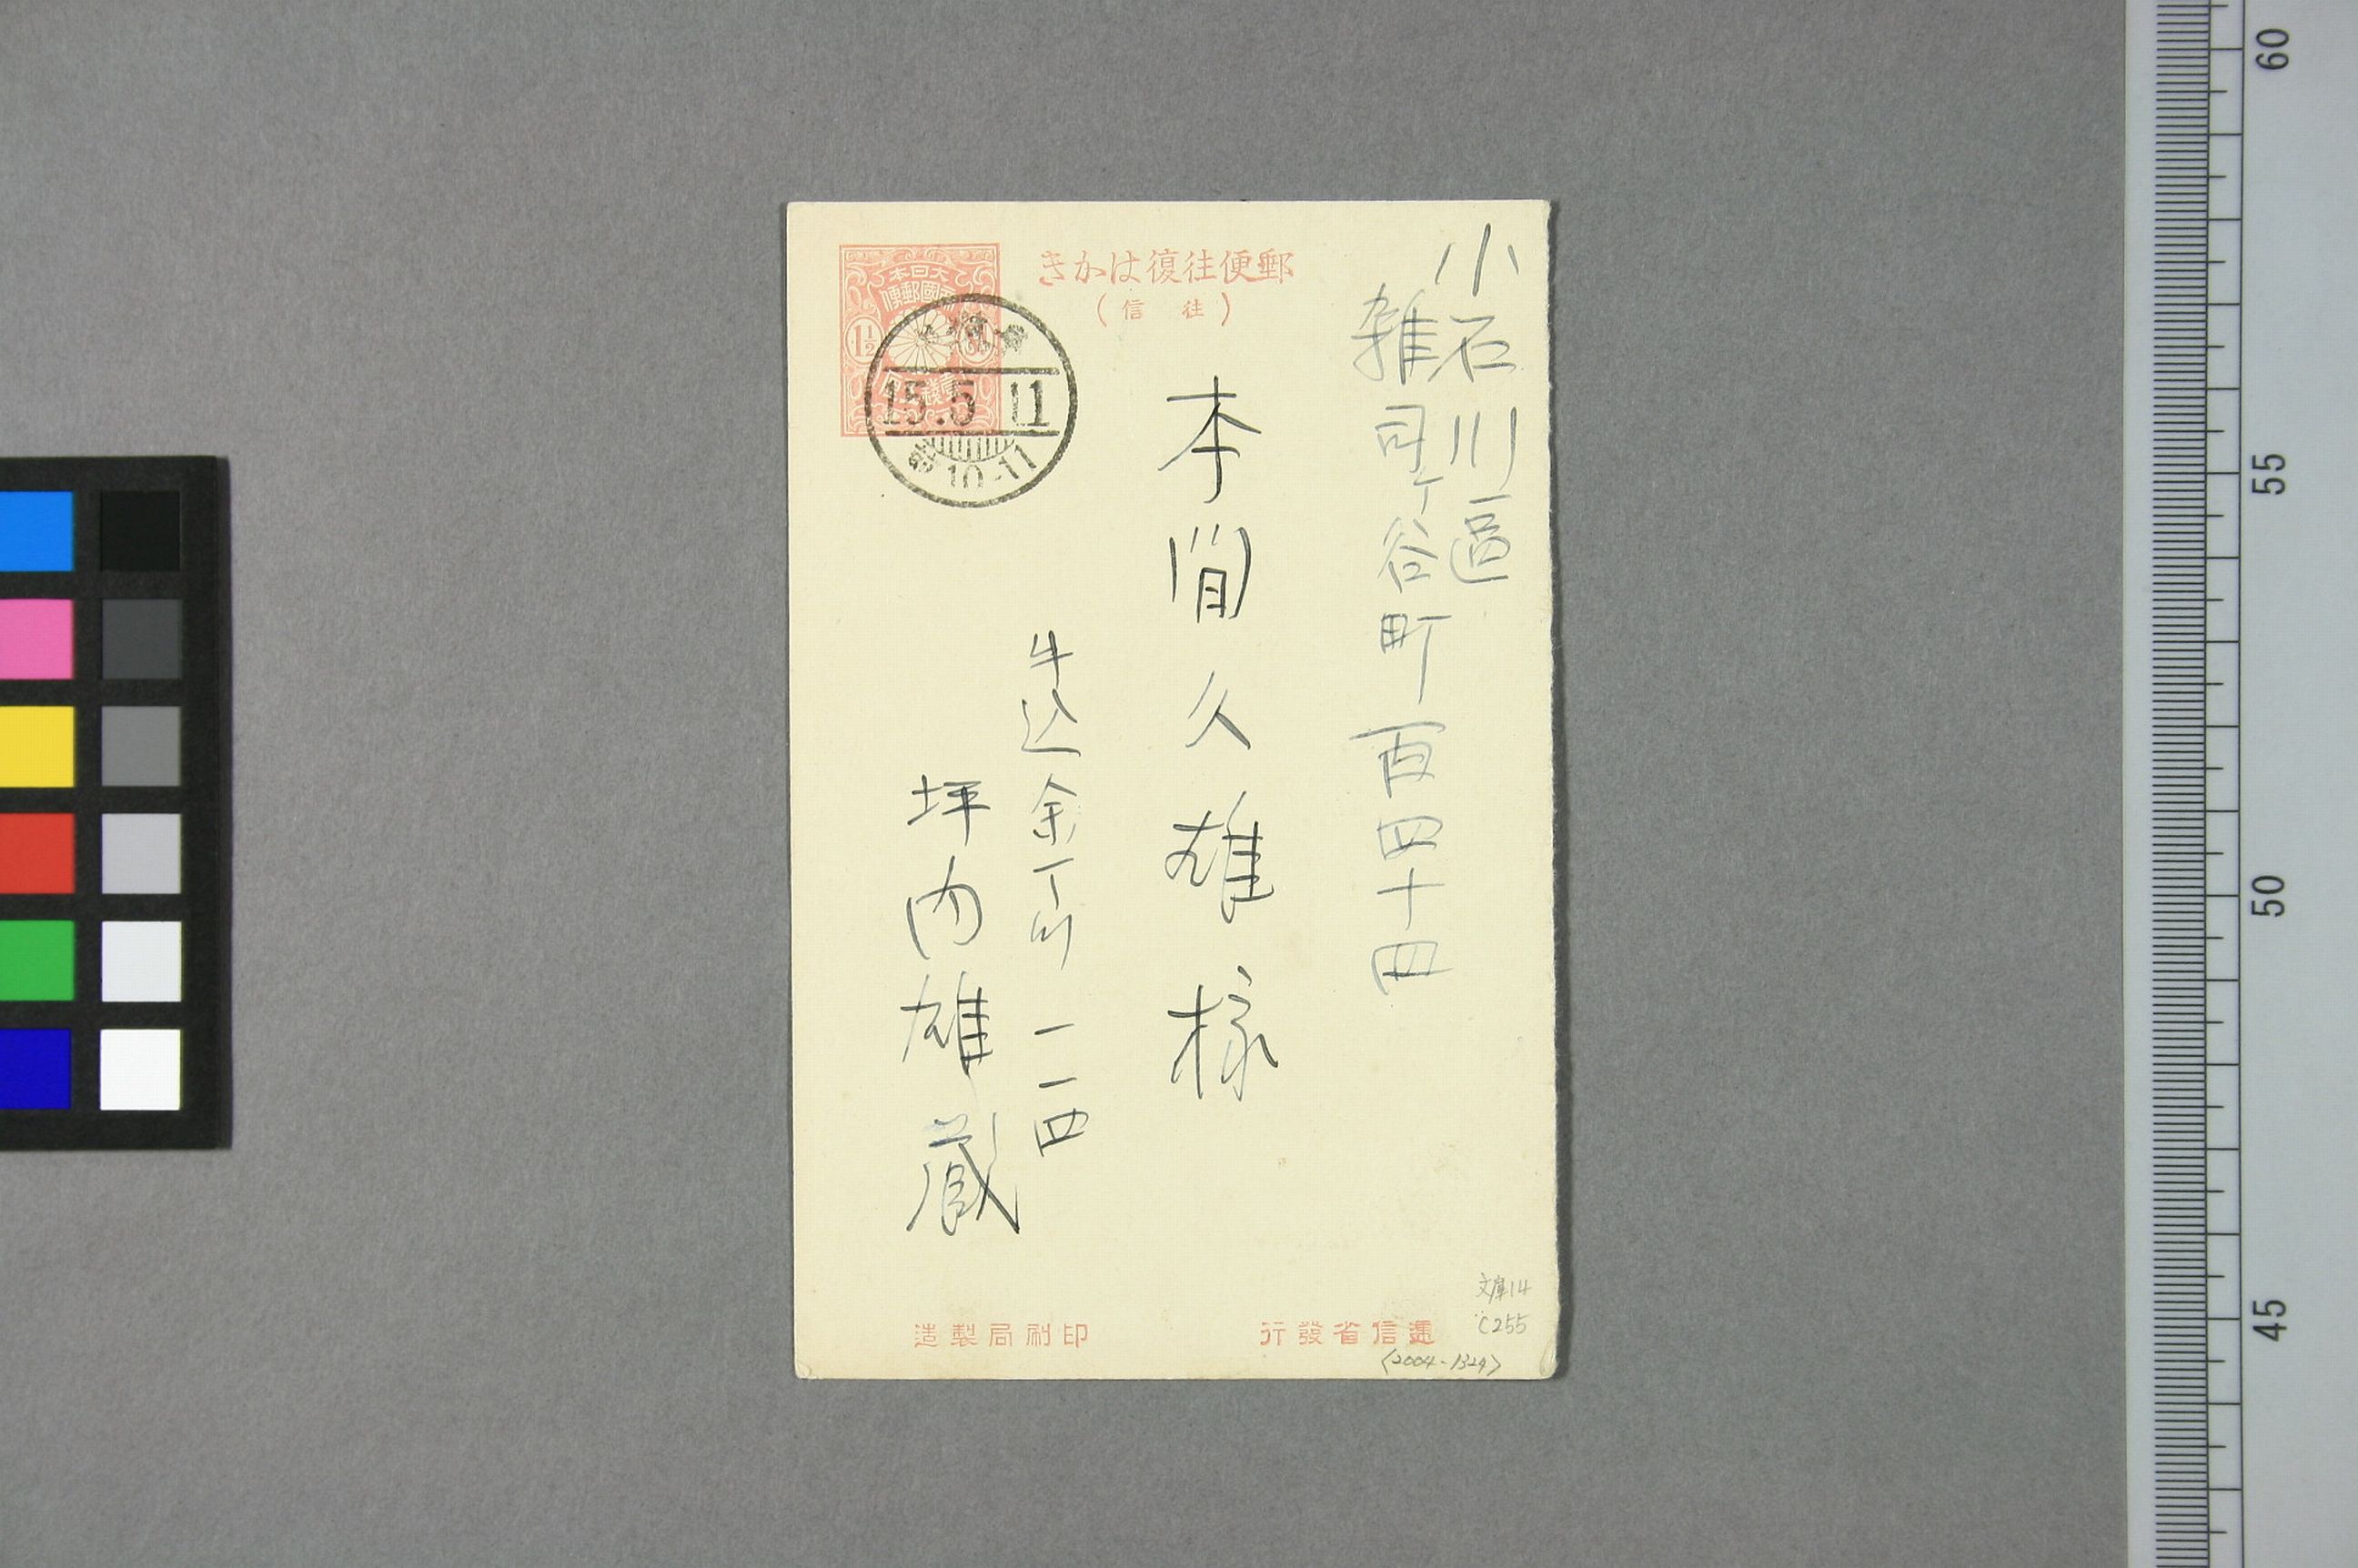 郵便往復はかき
(往信)
大日本
帝國郵便
1½
15.5.11
10-11
小石川區
雑司ケ谷町百四十四
本間久雄様
牛込余丁町一一四
坪内雄蔵
遞信省發行
印刷局製造
文庫14
C255
〈2004-1324〉
60
55
50
45